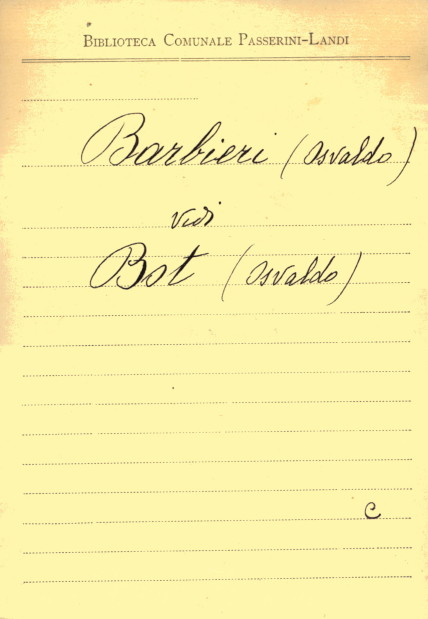 BIBLIOTECA COMUNALE PASSERINI-LANDI
Barbieri (Osvaldo)
vidi
Bot (Osvaldo)
C